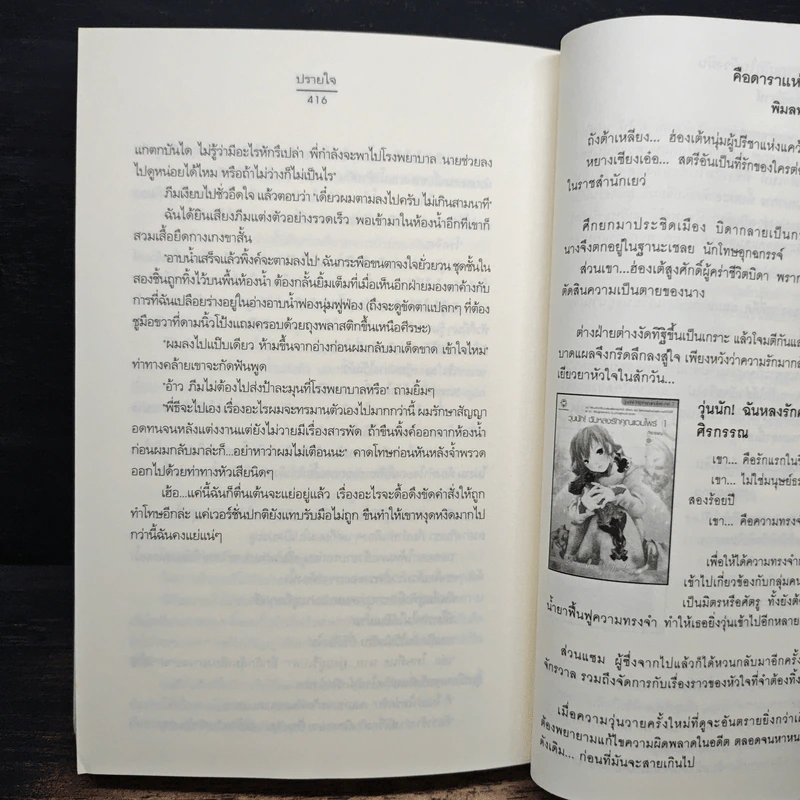 ปรายใจ
416
แกตกบันได ไม่รู้ว่ามีอะไรหักรึเปล่า พี่กำลังจะพาไปโรงพยาบาล นายช่วยลง
ไปดูหน่อยได้ไหม หรือถ้าไม่ว่างก็ไม่เป็นไร'
ภีมเงียบไปชั่วอึดใจ แล้วตอบว่า 'เดี๋ยวผมตามลงไปครับ ไม่เกินสามนาที'
ฉันได้ยินเสียงภีมแต่งตัวอย่างรวดเร็ว พอเข้ามาในห้องน้ำอีกทีเขาก็
สวมเสื้อยืดกางเกงขาสั้น
'อาบน้ำเสร็จแล้วพิ้งค์จะตามลงไป' ฉันกระพือขนตาจงใจยั่วยวน ชุดชั้นใน
สองชิ้นถูกทิ้งไว้บนพื้นห้องน้ำ ต้องกลั้นยิ้มเต็มที่เมื่อเห็นอีกฝ่ายมองตาค้างกับ
การที่ฉันเปลือยร่างอยู่ในอ่างอาบน้ำฟองนุ่มฟูฟ่อง (ถึงจะดูขัดตาแปลกๆ ที่ต้อง
ชูมือขวาที่ดามนิ้วโป้งแถมครอบด้วยถุงพลาสติกขึ้นเหนือศีรษะ)
'ผมลงไปแป๊บเดียว ห้ามขึ้นจากอ่างก่อนผมกลับมาเด็ดขาด เข้าใจไหม'
ท่าทางคล้ายเขาจะกัดฟันพูด
'อ้าว ภีมไม่ต้องไปส่งป้าละมุนที่โรงพยาบาลหรือ' ถามยิ้มๆ
'พี่ธีจะไปเอง เรื่องอะไรผมจะทรมานตัวเองไปมากกว่านี้ ผมรักษาสัญญา
อดทนจนหลังแต่งงานแต่ยังไม่วายมีเรื่องสารพัด ถ้าขืนพิ้งค์ออกจากห้องน้ำ
ก่อนผมกลับมาล่ะก็...อย่าหาว่าผมไม่เตือนนะ' คาดโทษก่อนหันหลังจ้ำพรวด
ออกไปด้วยท่าทางหัวเสียนิดๆ
เฮ้อ...แค่นี้ฉันก็ตื่นเต้นจะแย่อยู่แล้ว เรื่องอะไรจะดื้อดึงขัดคำสั่งให้ถูก
ทำโทษอีกล่ะ แค่เวอร์ชันปกติยังแทบรับมือไม่ถูก ขืนทำให้เขาหงุดหงิดมากไป
กว่านี้ฉันคงแย่แน่ๆ
คือดาราแห่
พิมลพ
ถังต้าเหลียง... ฮ่องเต้หนุ่มผู้ปรีชาแห่งแคว้
หยางเซียงเอ๋อ... สตรีอันเป็นที่รักของใครต่อ
ในราชสำนักเยว่
ศึกยกมาประชิดเมือง บิดากลายเป็นก
นางจึงตกอยู่ในฐานะเชลย นักโทษอุกฉกรรจ์
ส่วนเขา...ฮ่องเต้สูงศักดิ์ผู้คร่าชีวิตบิดา พราก
ตัดสินความเป็นตายของนาง
ต่างฝ่ายต่างงัดทิฐิขึ้นเป็นเกราะ แล้วโจมตีกันแล
บาดแผลจึงกรีดลึกลงสู่ใจ เพียงหวังว่าความรักมาก
เยียวยาหัวใจในสักวัน...
วุ่นนัก! ฉันหลงรักคุณแวมไพร์ 1
วุ่นนัก! ฉันหลงรักค
ศิรกรรณ
เขา... คือรักแรกในชี
เขา... ไม่ใช่มนุษย์ธร
สองร้อยปี
เขา... คือความทรงจ
เพื่อให้ได้ความทรงจำก
เข้าไปเกี่ยวข้องกับกลุ่มคน
เป็นมิตรหรือศัตรู ทั้งยังต้อ
น้ำยาฟื้นฟูความทรงจำ ทำให้เธอยิ่งวุ่นเข้าไปอีกหลาย
ส่วนแซม ผู้ซึ่งจากไปแล้วก็ได้หวนกลับมาอีกครั้ง
จักรวาล รวมถึงจัดการกับเรื่องราวของหัวใจที่จำต้องทิ้ง
เมื่อความวุ่นวายครั้งใหม่ที่ดูจะอันตรายยิ่งกว่าเดิ
ต้องพยายามแก้ไขความผิดพลาดในอดีต ตลอดจนหาหน
ดังเดิม... ก่อนที่มันจะสายเกินไป